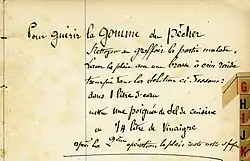 Pour guérir la gomme du pêcher
Nettoyer et gratter la partie malade,
Laver la plaie avec une brosse à crin rude
trempée dans la solution ci-dessous:
dans 1 litre d'eau
mettre une poignée de Sel de cuisine
et 1/4 litre de Vinaigre
après la 2ème opération la plaie
G
H
I
J
K